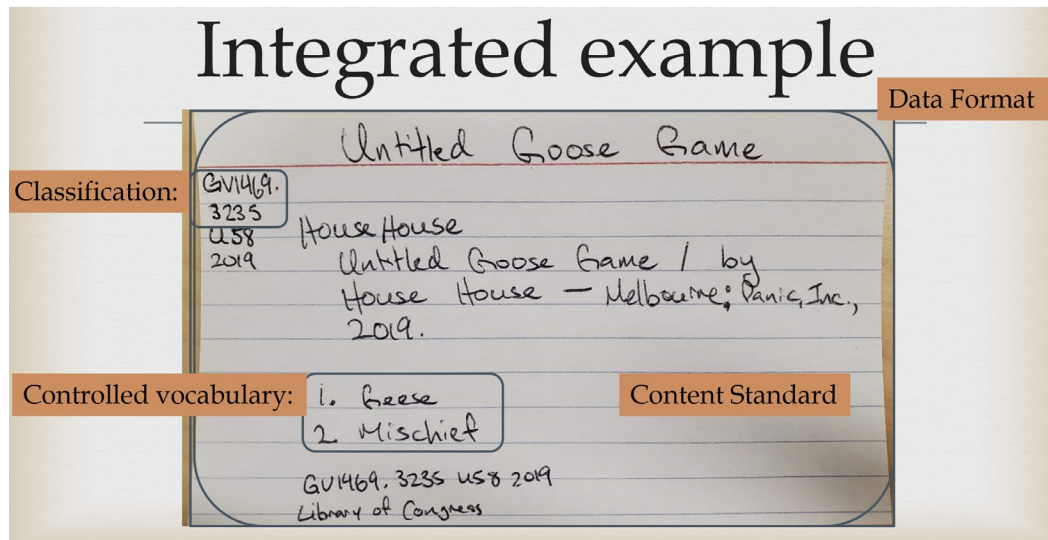 Integrated example
Data Format
Untitled Goose Game
Classification:
GV1469.
3235
U58
2019
House House
Untitled Goose Game / by
House House — Melbourne; Panic, Inc.,
2019.
Controlled vocabulary:
1. Geese
2. Mischief
Content Standard
GV1469. 3235 U58 2019
Library of Congress